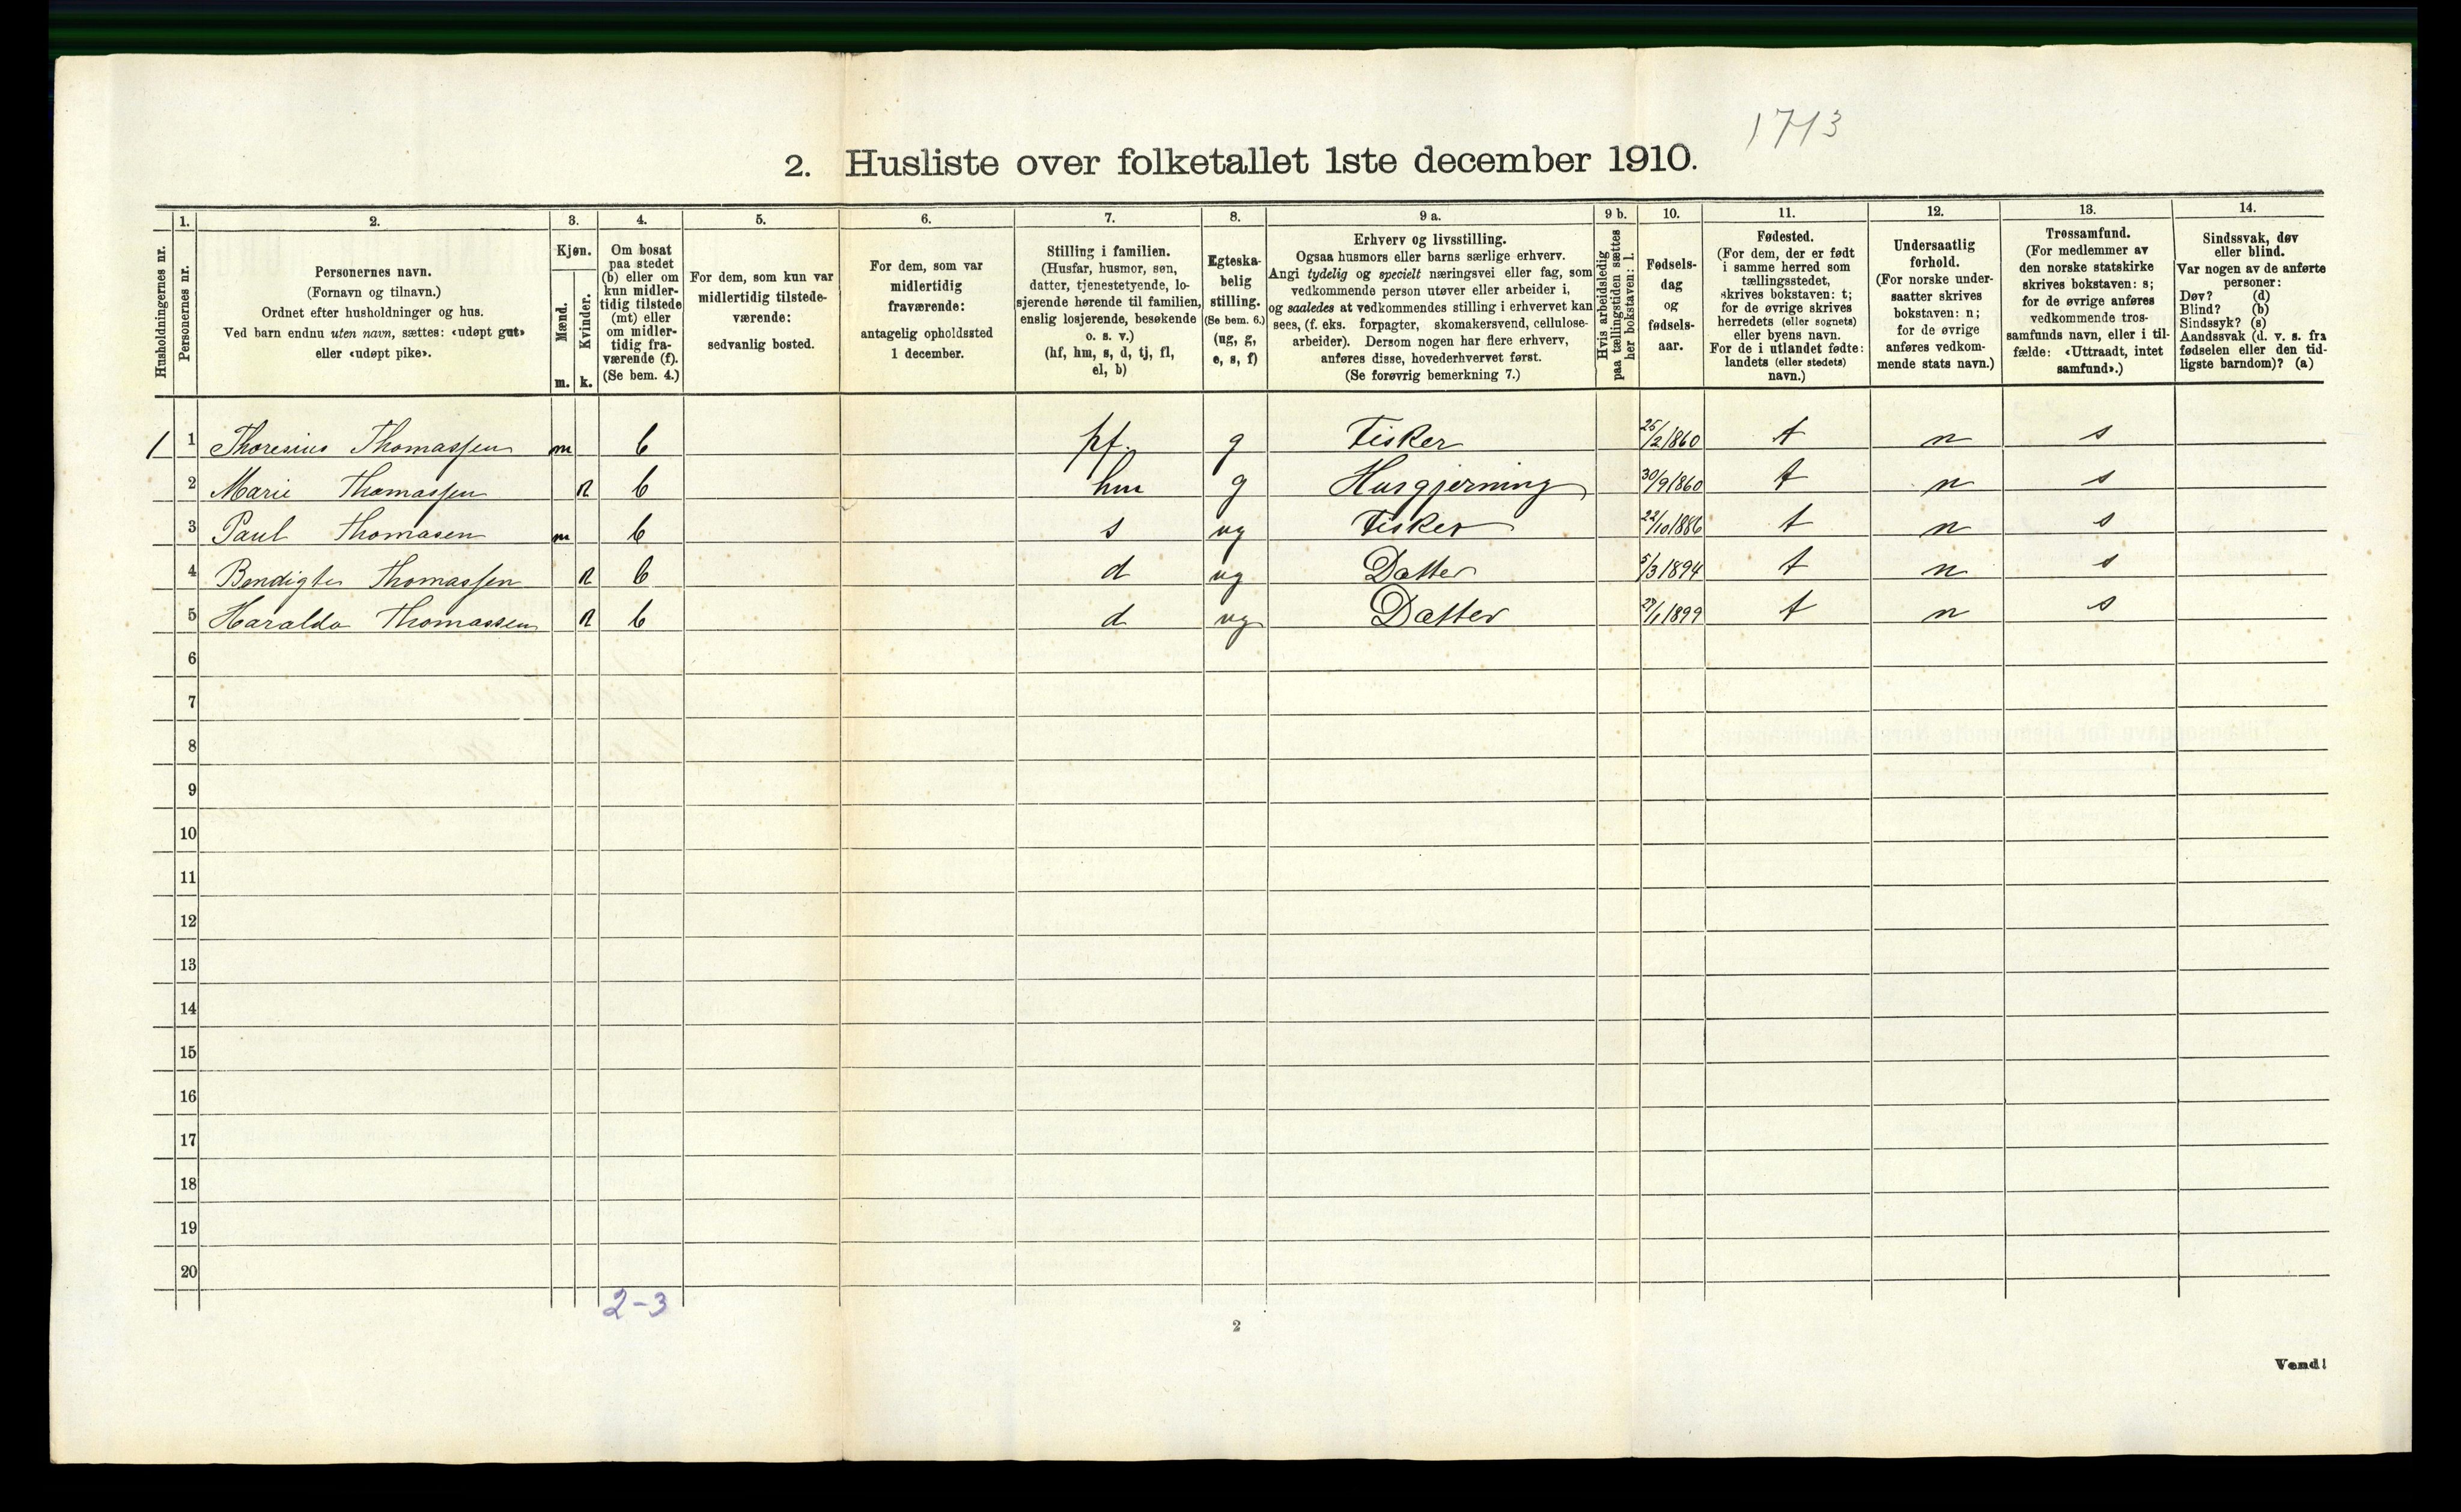 1713
2. Husliste over folketallet 1ste december 1910.
1. 2. 3. 4. 5. 6. 7. 8. 9 a. 9 b. 10. 11. 12. 13. 14.
Husholdningernes nr.
Personernes nr.
Personernes navn.
(Fornavn og tilnavn.)
Ordnet efter husholdninger og hus.
Ved barn endnu uten navn, sættes: «udøpt gut»
eller «udøpt pike».
Kjøn.
Mænd.
Kvinder.
m. k.
Om bosat
paa stedet
(b) eller om
kun midler-
tidig tilstede
(mt) eller
om midler-
tidig fra-
værende (f).
(Se bem. 4.)
For dem, som kun var
midlertidig tilstede-
værende:
sedvanlig bosted.
For dem, som var
midlertidig
fraværende:
antagelig opholdssted
1 december.
Stilling i familien.
(Husfar, husmor, søn,
datter, tjenestetyende, lo-
sjerende hørende til familien,
enslig losjerende, besøkende
o. s. v.)
(hf, hm, s, d, tj, fl,
el, b)
Egteska-
belig
stilling.
(Se bem. 6.)
(ug, g,
e, s, f)
Erhverv og livsstilling.
Ogsaa husmors eller barns særlige erhverv.
Angi tydelig og specielt næringsvei eller fag, som
vedkommende person utøver eller arbeider i,
og saaledes at vedkommendes stilling i erhvervet kan
sees, (f. eks. forpagter, skomakersvend, cellulose-
arbeider). Dersom nogen har flere erhverv,
anføres disse, hovederhvervet først.
(Se forøvrig bemerkning 7.)
Hvis arbeidsledig
paa tællingstiden sættes
her bokstaven: l.
Fødsels-
dag
og
fødsels-
aar.
Fødested.
(For dem, der er født
i samme herred som
tællingsstedet,
skrives bokstaven: t;
for de øvrige skrives
herredets (eller sognets)
eller byens navn.
For de i utlandet fødte:
landets (eller stedets)
navn.)
Undersaatlig
forhold.
(For norske under-
saatter skrives
bokstaven: n;
for de øvrige
anføres vedkom-
mende stats navn.)
Trossamfund.
(For medlemmer av
den norske statskirke
skrives bokstaven: s;
for de øvrige anføres
vedkommende tros-
samfunds navn, eller i til-
fælde: «Uttraadt, intet
samfund».)
Sindssvak, døv
eller blind.
Var nogen av de anførte
personer:
Døv? (d)
Blind? (b)
Sindssyk? (s)
Aandssvak (d. v. s. fra
fødselen eller den tid-
ligste barndom)? (a)
1 1 Thoresius Thomassen m b hf. g Fisker 25/2 1860 t n s
2 Marie Thomassen k b hm g Husgjerning 30/9 1860 t n s
3 Paul Thomasen m b s ug Fisker 22/10 1886 t n s
4 Bendigte Thomassen k b d ug Datter 5/3 1894 t n s
5 Haralda Thomassen k b d ug Datter /1 1899 t n s
6
7
8
9
10
11
12
13
14
15
16
17
18
19
20
2-3
2
Vend!